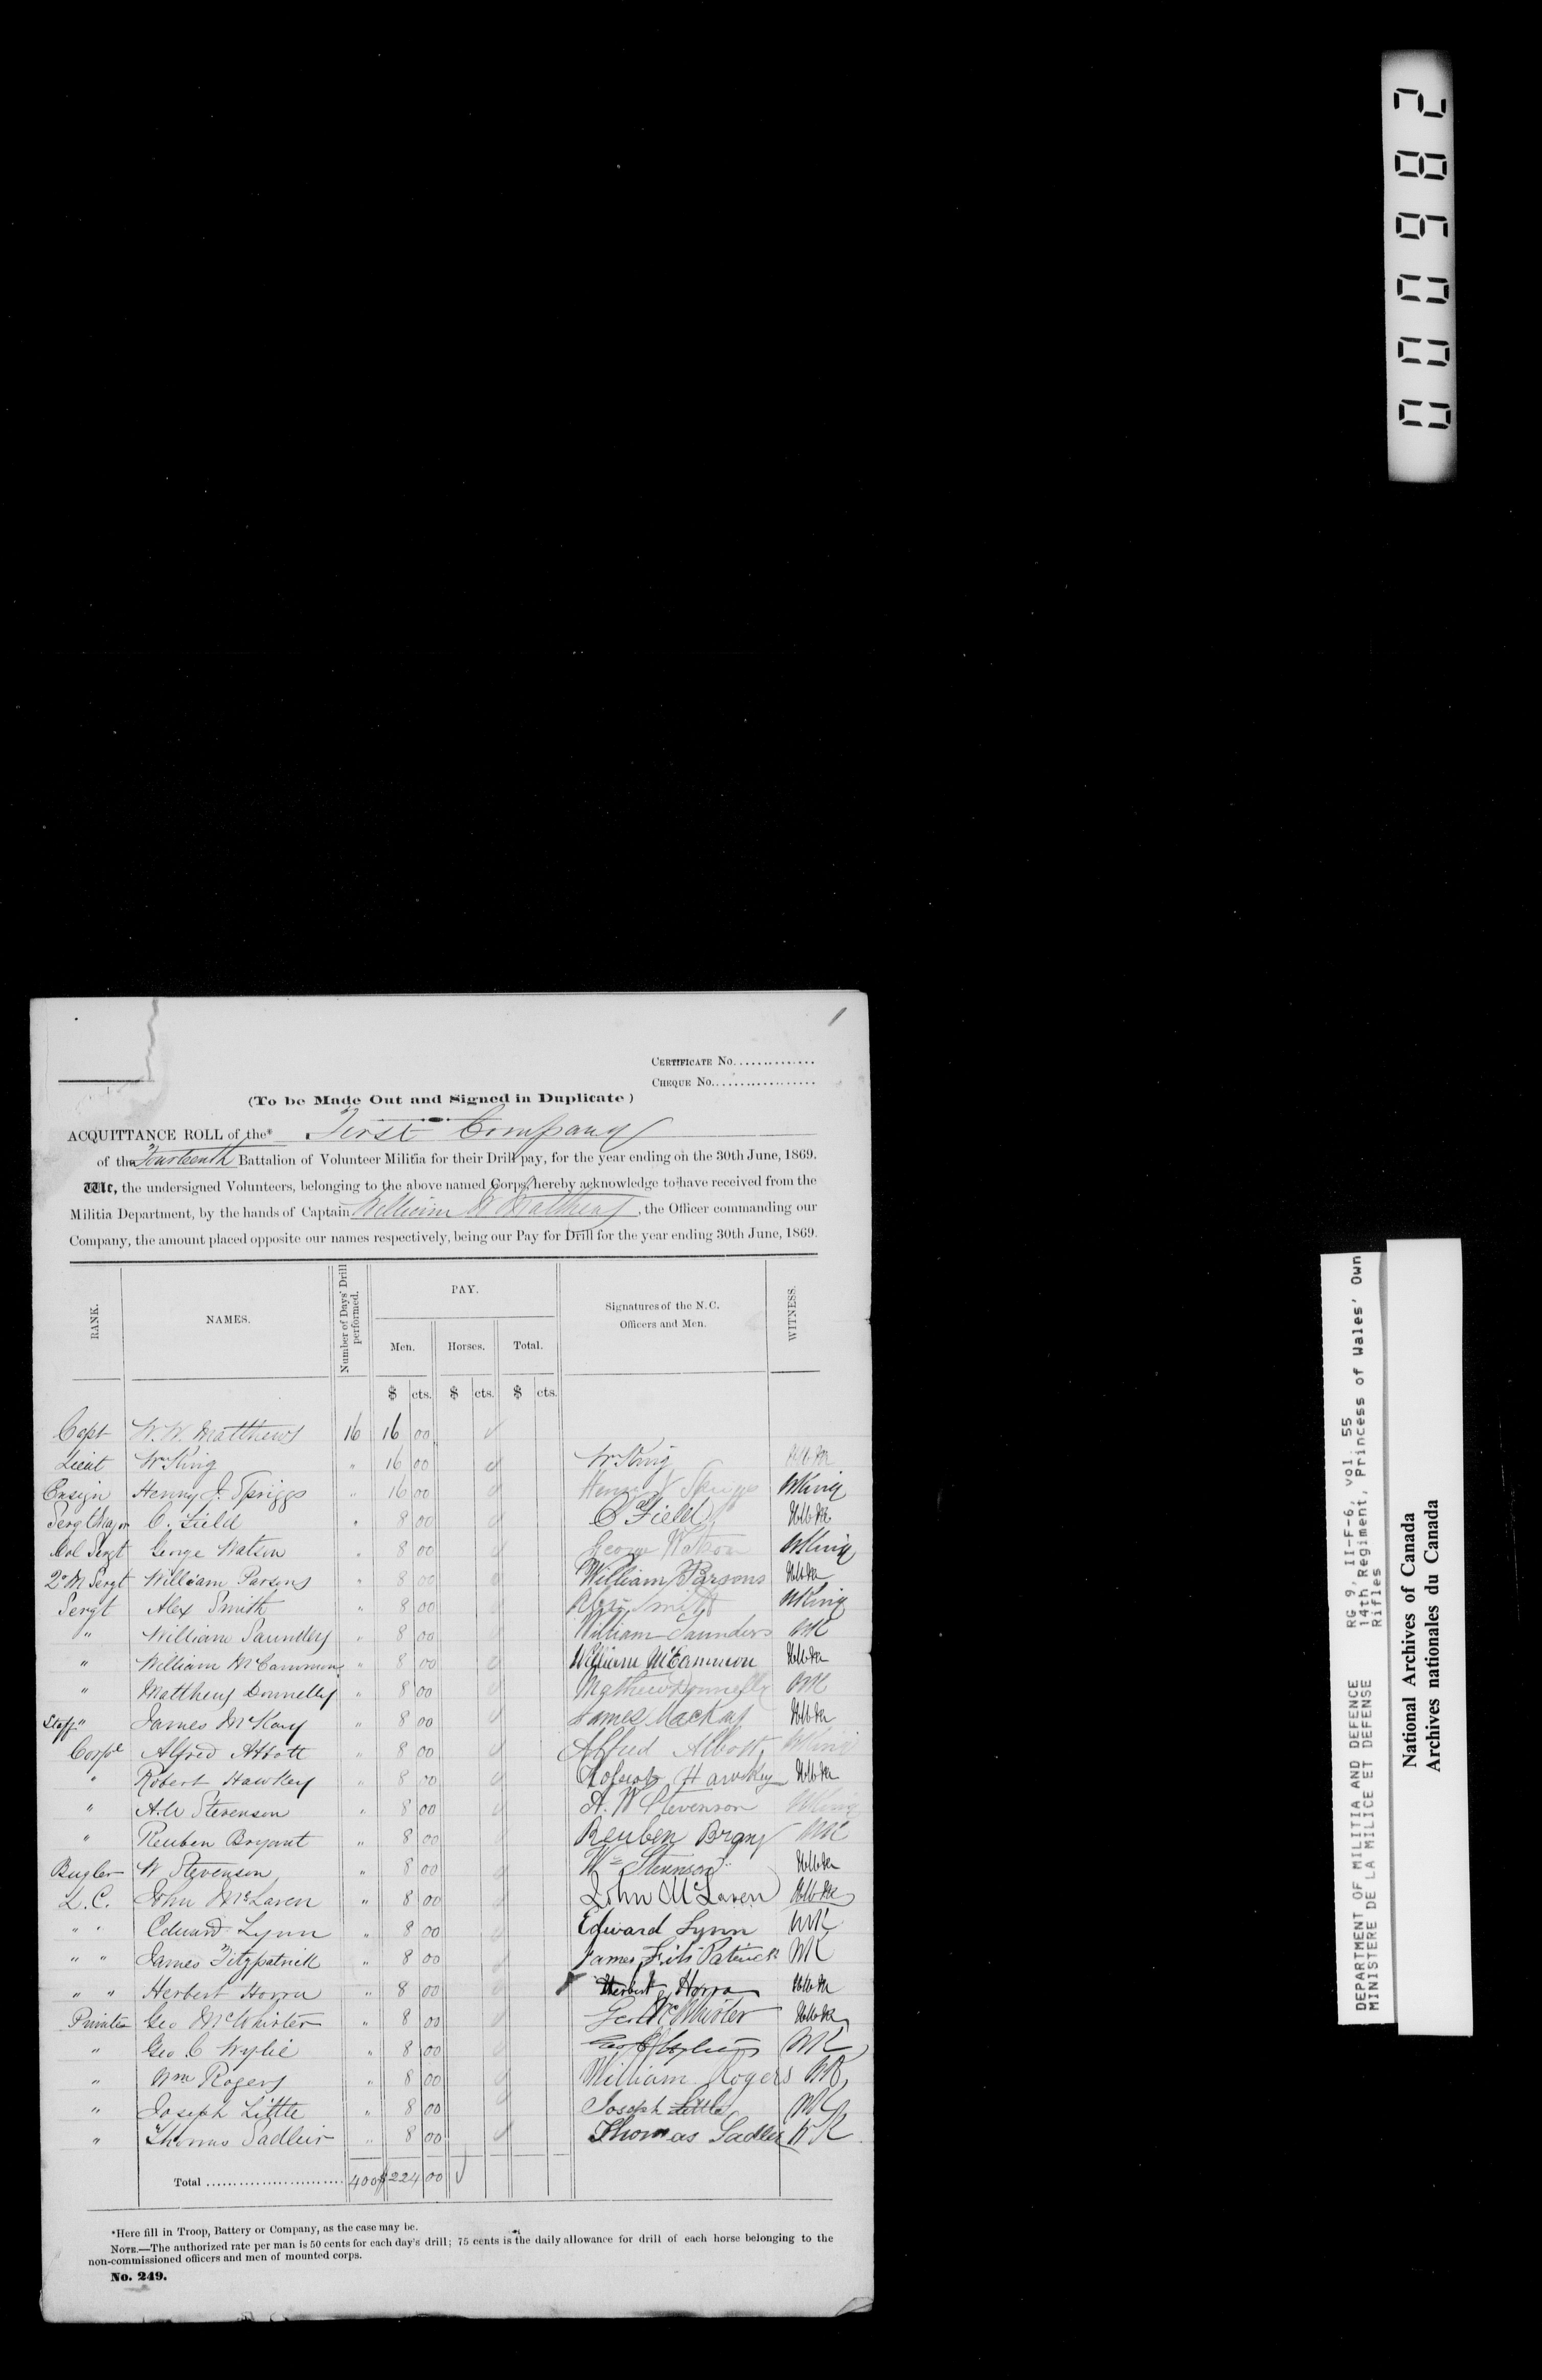 1
CERTIFICATE No..............
CHEQUE No..................
(To be Made Out and Signed in Duplicate)
ACQUITTANCE ROLL of the* First Company
of the Fourteenth Battalion of Volunteer Militia for their Drill pay, for the year ending on the 30th June, 1869.
We, the undersigned Volunteers, belonging to the above named Corps, hereby acknowledge to have received from the
Militia Department, by the hands of Captain William W Matthews, the Officer commanding our
Company, the amount placed opposite our names respectively, being our Pay for Drill for the year ending 30th June, 1869.
RANK. NAMES. Number of Days' Drill performed. PAY. Signatures of the N.C. Officers and Men. WITNESS.
Men. Horses. Total.
$ cts. $ cts. $ cts.
Capt W. W. Matthews 16 16 00
Lieut Wm King " 16 00 Wm King
Ensign Henry J. Spriggs " 16 00 Henry J Spriggs WKing
Sergt Major C. Field " 8 00 C Field
Col Sergt George Watson " 8 00 George Watson WKing
Qr M Sergt William Parsons " 8 00 William Parsons
Sergt Alex Smith " 8 00 Alex Smith WKing
" William Saunders " 8 00 William Saunders WK
" William McCammon " 8 00 William McCammon
" Matthew Donnelly " 8 00 Mathew Donnelly WK
Staff " James McKay " 8 00 James Mackay
Corpl Alfred Abbott " 8 00 Alfred Abbott WKing
" Robert Hawkey " 8 00 Robert Hawkey
" A. W Stevenson " 8 00 A. W Stevenson WKing
" Reuben Bryant " 8 00 Reuben Bryant WK
Bugler W Stevenson " 8 00 Wm Stevenson
L. C. John McLaren " 8 00 John McLaren
" " Edward Lynn " 8 00 Edward Lynn WK
" " James Fitzpatrick " 8 00 James FitsPatrick WK
" " Herbert Horra " 8 00 Herbert Horra
Privates Geo McWhirter " 8 00 Geo McWhirter
" Geo C Wylie " 8 00 WK
" Wm Rogers " 8 00 William Rogers WK
" Joseph Little " 8 00 Joseph Little WK
" Thomas Sadleir " 8 00 Thomas Sadleir WK
Total .......................... 400 $224 00
*Here fill in Troop, Battery or Company, as the case may be.
NOTE.—The authorized rate per man is 50 cents for each day's drill; 75 cents is the daily allowance for drill of each horse belonging to the
non-commissioned officers and men of mounted corps.
No. 249.
000682
DEPARTMENT OF MILITIA AND DEFENCE RG 9, II-F-6, vol. 55
MINISTERE DE LA MILICE ET DEFENSE 14th Regiment, Princess of Wales' Own
Rifles
National Archives of Canada
Archives nationales du Canada